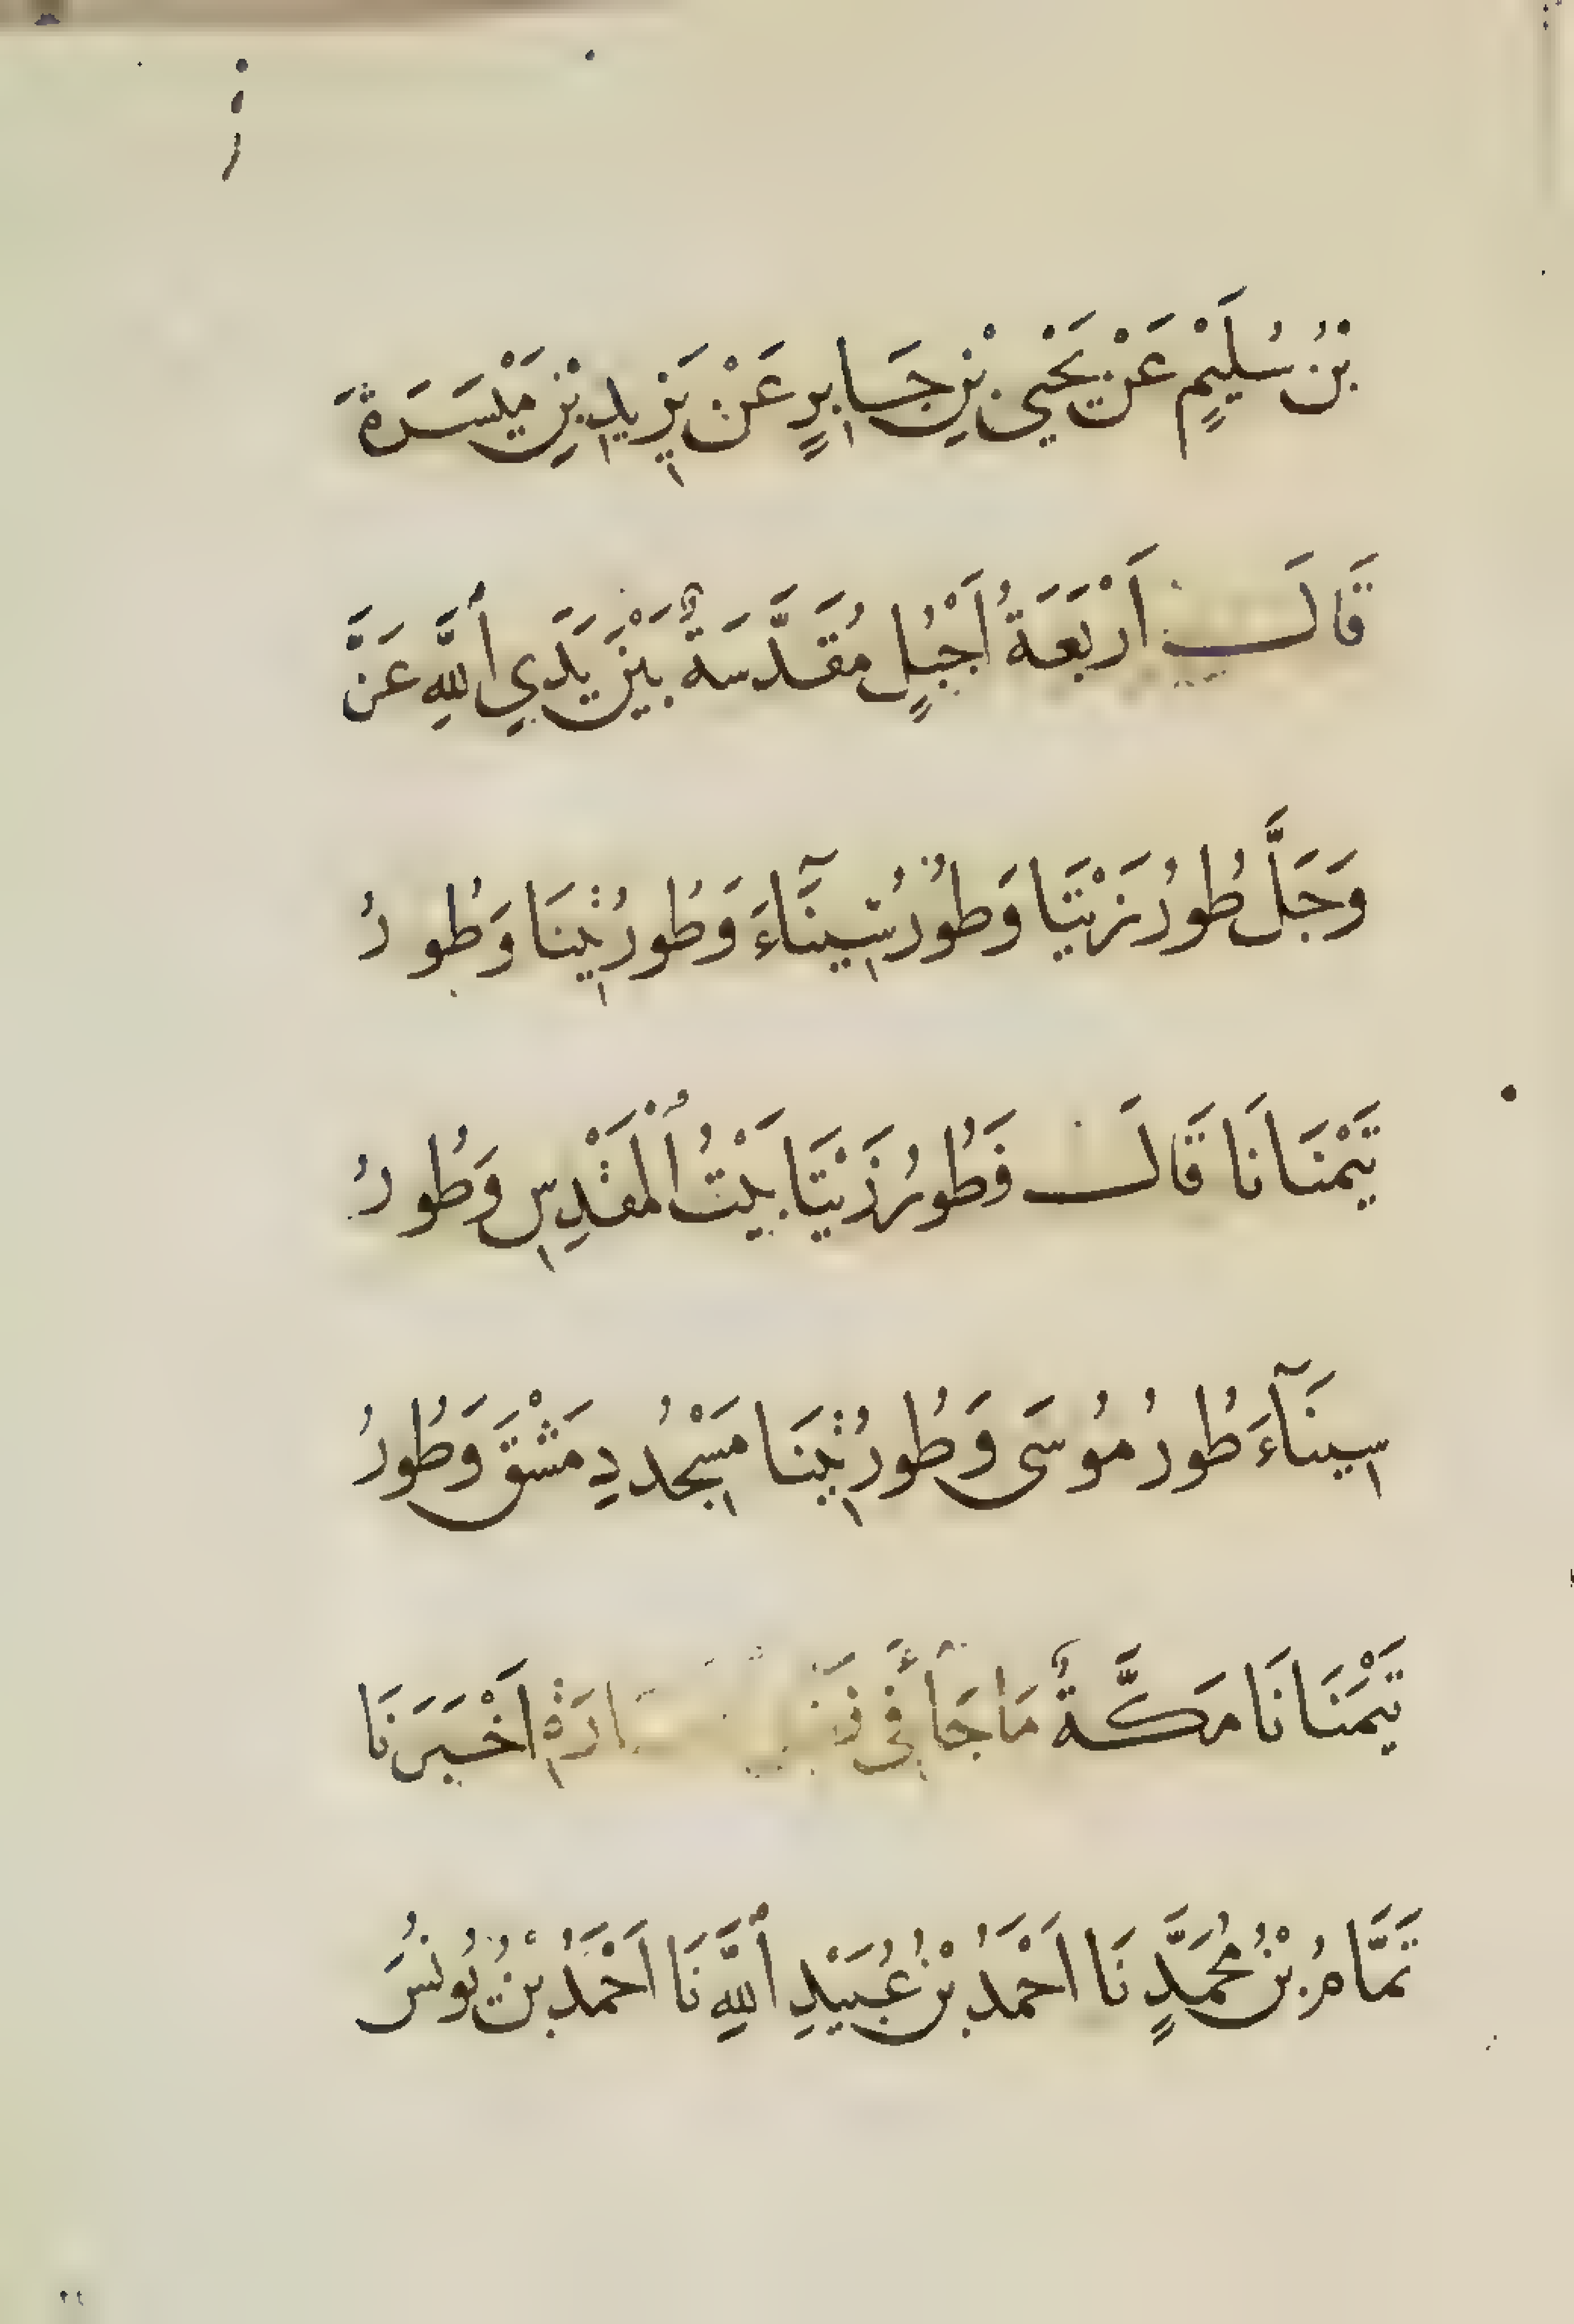 بْنُ سُلَيْمٍ عَنْ يَحْيَى بْنِ جَابِرٍ عَنْ يَزِيدِ بْنِ مَيْسَرَةَ
قَالَ أَرْبَعَةُ أَجْبُلٍ مُقَدَّسَةٌ بَيْنَ يَدَيِ اللَّهِ عَزَّ
وَجَلَّ طُورُ زَيْتَا وَطُورُ سِينَآءَ وَطُورُ تِينَا وَطُورُ
تَيْمَنَانَا قَالَ فَطُورُ زَيْتَا بَيْتُ الْمَقْدِسِ وَطُورُ
سِينَآءَ طُورُ مُوسَى وَطُورُ تِينَا مَسْجِدُ دِمَشْقَ وَطُورُ
تَيْمَنَانَا مَكَّةُ مَا جَآ فِي أَخْبَرَنَا
تَمَّامُ بْنُ مُحَمَّدٍ نَا أَحْمَدُ بْنُ عُبَيْدِ اللَّهِ نَا أَحْمَدُ بْنُ يُونُسَ